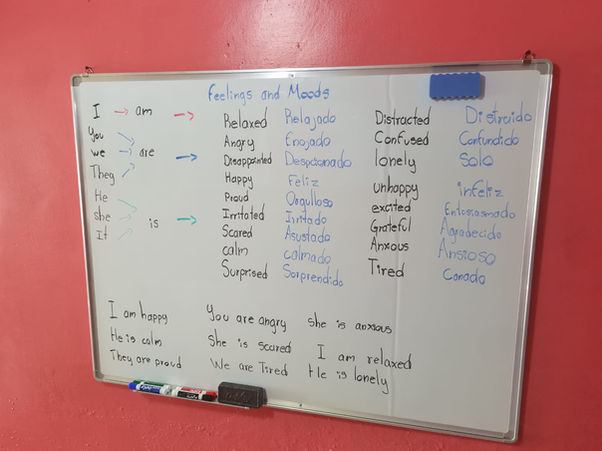 Feelings and Moods
I → am →
You
we → are →
They
He
she → is →
It
Relaxed Relajado
Angry Enojado
Disappointed Despcionado
Happy Feliz
Proud Orgulloso
Irritated Irritado
Scared Asustado
calm calmado
Surprised Sorprendido
Distracted Distraido
Confused Confundido
lonely Solo
unhappy infeliz
excited Entosiasmado
Grateful Agradecido
Anxous Ansioso
Tired Canado
I am happy You are angry She is anxious
He is calm She is scared I am relaxed
They are proud We are Tired He is lonely